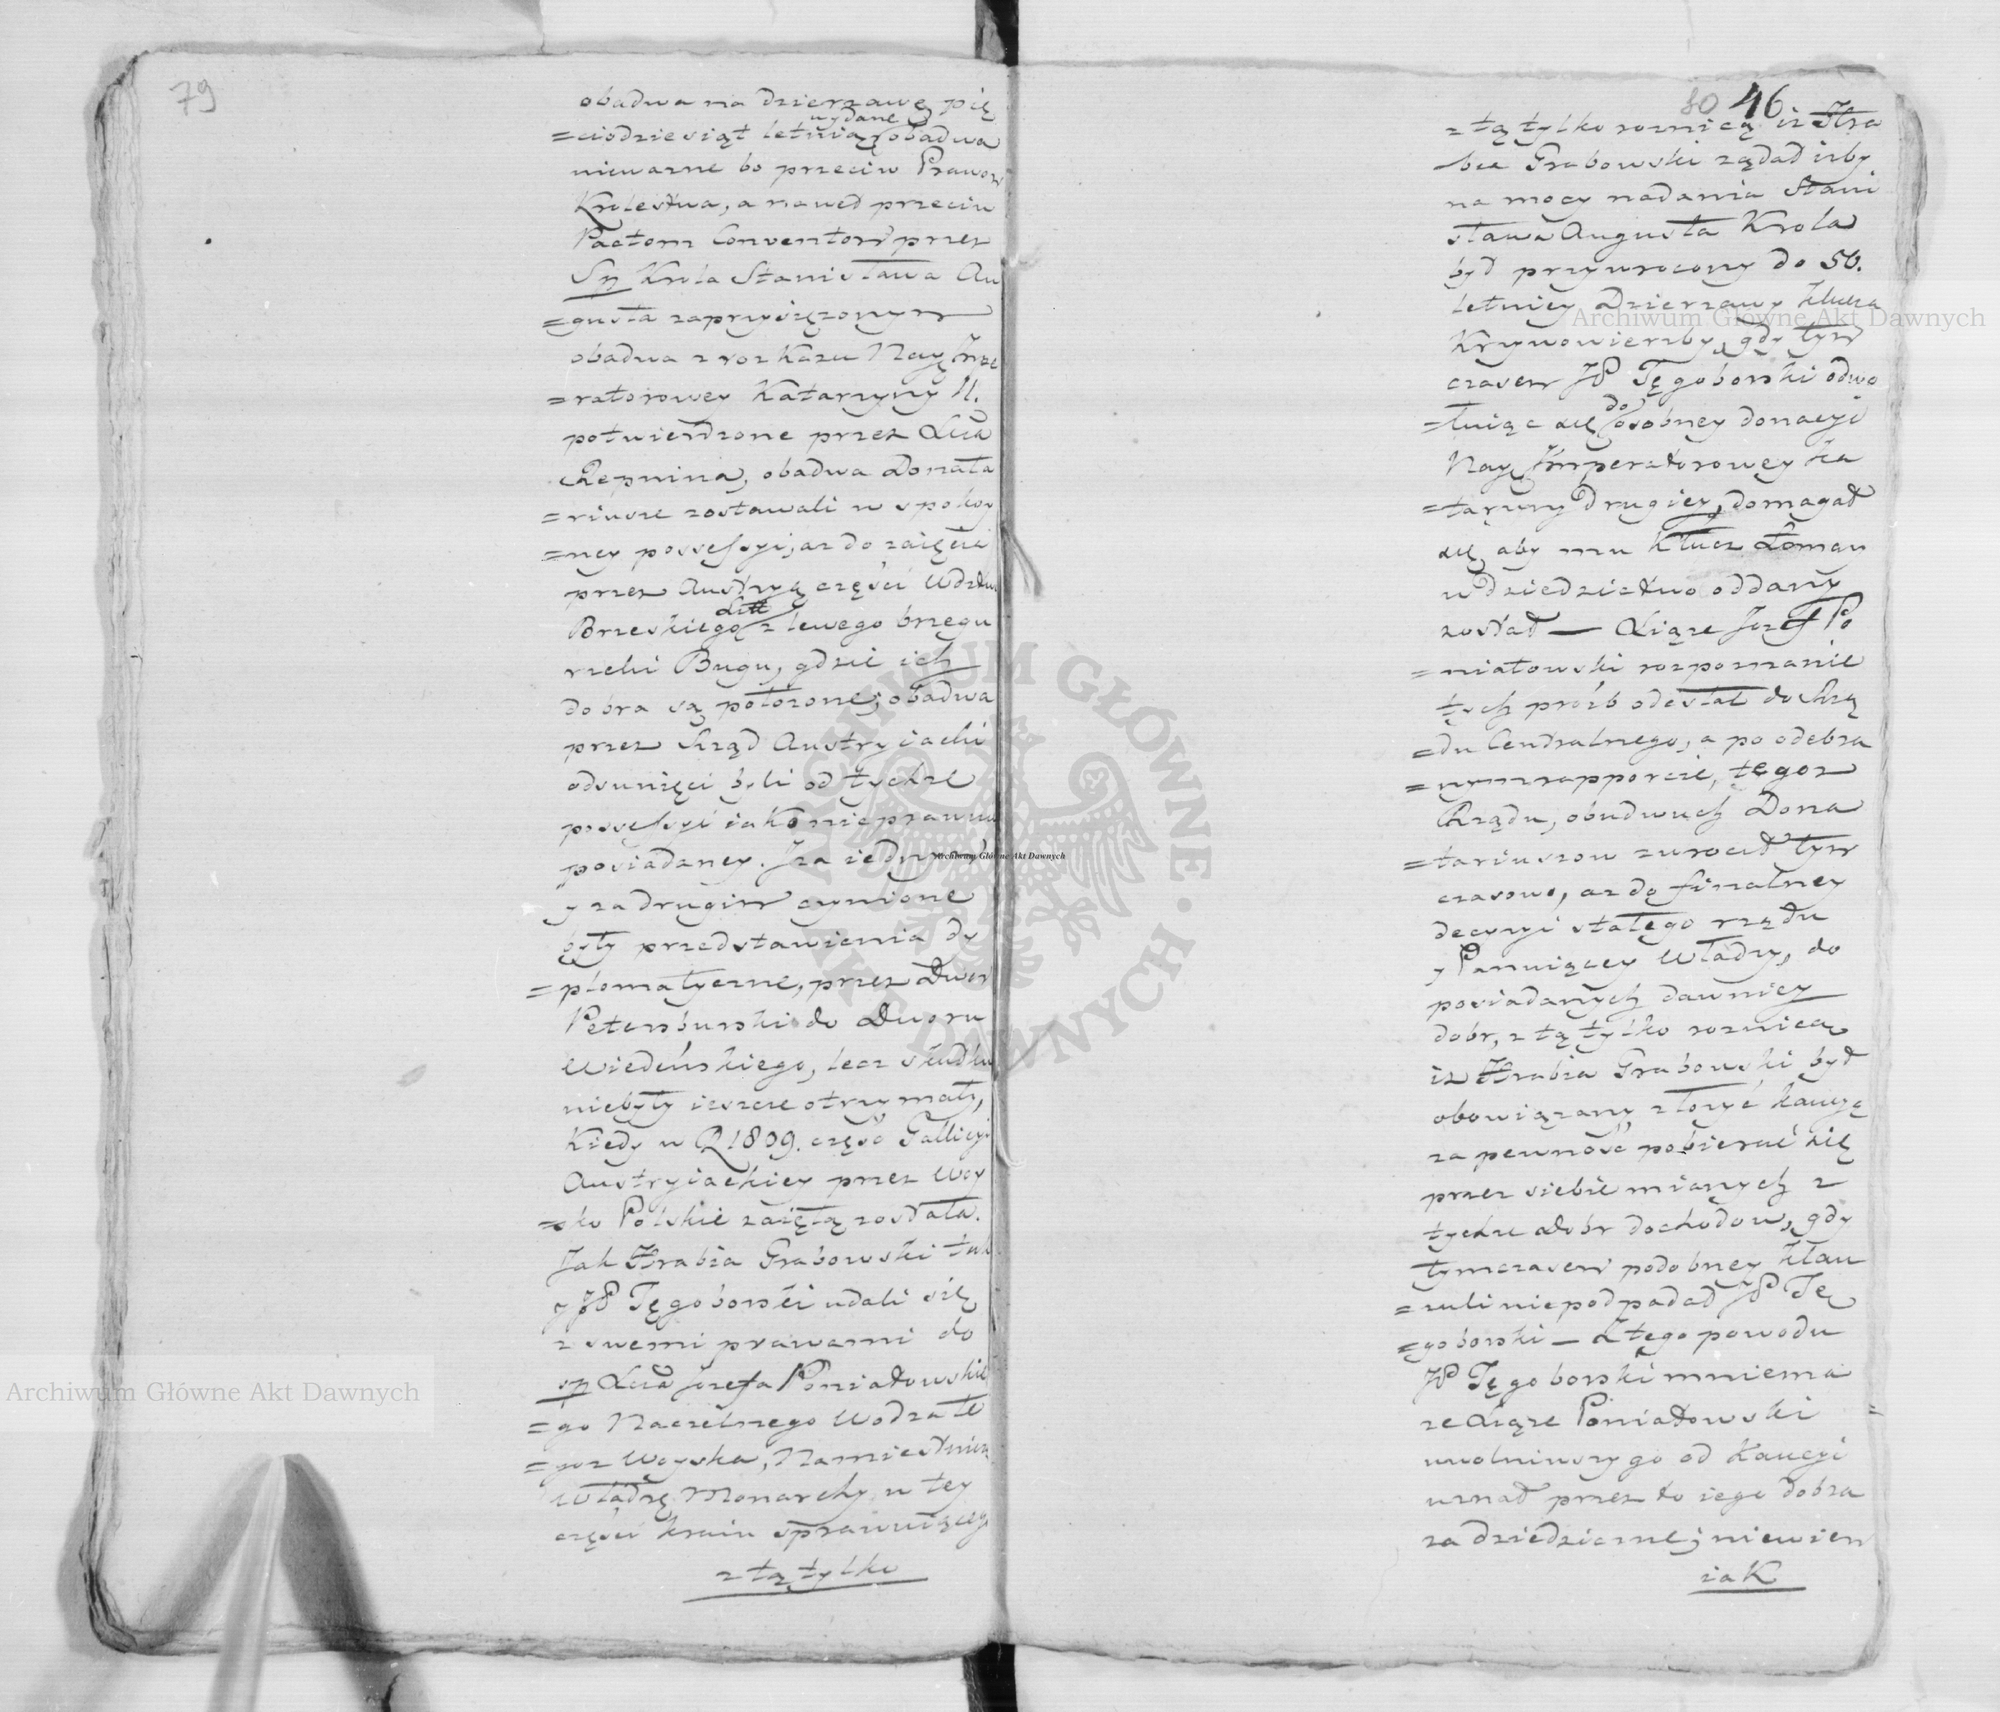 79
obadwa na dzierzawę pię
wydane
=ciodziesiąt letnią obadwa
niewazne bo przeciw Prawom
Krolestwa, a nawed przeciw
Pactom Conventom przez
Sp Krola Stanisława Au
=gusta zaprzysięzonym
obadwa z rozkazu Nayj Impe
=ratorowey Katarzyny II.
potwierdzone przez Xcia
Repnina, obadwa Donata
=riusze zostawali w spokoy
=ney possessyi, az do zaięcia
przez Austryą części Wdztwa
Litt
Brzeskiego z lewego brzegu
rzeki Bugu, gdzie ich
dobra są połozone; obadwa
przez Rząd Austryiacki
odsunięci byli od tychze
possessyi iako nieprawnie
posiadaney. Iza iednym
y za drugim czynione
były przedstawienia dy
=plomatyczne, przez Dwor
Petersburski do Dworu
Wiedeńskiego, lecz skutku
niebyły ieszcze otrzymały,
Kiedy w R 1809. część Gallicyi
Austryiackiey przez Woy
=sko Polskie zaiętą została.
Jak Hrabia Grabowski tak
y JP Tęgoborski udali się
z swemi prawami do
sp Xcia Jozefa Poniatowskie
=go Naczelnego Wodza te
=goz Woyska, Namiestniczą
Władzę Monarchy w tey
części kraiu sprawuiącego
z tą tylko
80 46
z tą tylko roznicą iz Hra
bia Grabowski ządał izby
na mocy nadania Stani
sława Augusta Krola
był przywrocony do 50.
letniey Dzierzawy klucza
Krzywowierzby, gdy tym
czasem JP Tęgoborski odwo
do
=łuiąc się osobney donacyi
Nayj Imperatorowey Ka
=tarzyny drugiey, domagał
się, aby mu klucz Łomazy
w dziedzictwo oddany
został — Xiąze Jozef Po
=niatowski rozpoznanie
tych próźb odesłał do Rzą
=du Centralnego, a po odebra
=nym rapporcie, tegoz
Rządu, obudwuch Dona
=tariuszow zwrocił tym
czasowo, az do finalney
decyzyi stałego rządu
y Panuiącey Władzy, do
posiadanych dawniey
dobr, z tą tylko roznicą
iz Hrabia Grabowski był
obowiązany złozyć kaucyę
za pewność pobierać się
przez siebie mianych z
tychze dobr dochodow, gdy
tymczasem podobney klau
=zuli niepodpadał JP Tę
=goborski — Ztego powodu
JP Tęgoborski mniema
ze Xiąze Poniatowski
uwolniwszy go od kaucyi
uznał przez to iego dobra
za dziedziczne; niewiem
iak
Archiwum Główne Akt Dawnych
Archiwum Główne Akt Dawnych
Archiwum Główne Akt Dawnych
ARCHIWUM GŁÓWNE AKT DAWNYCH